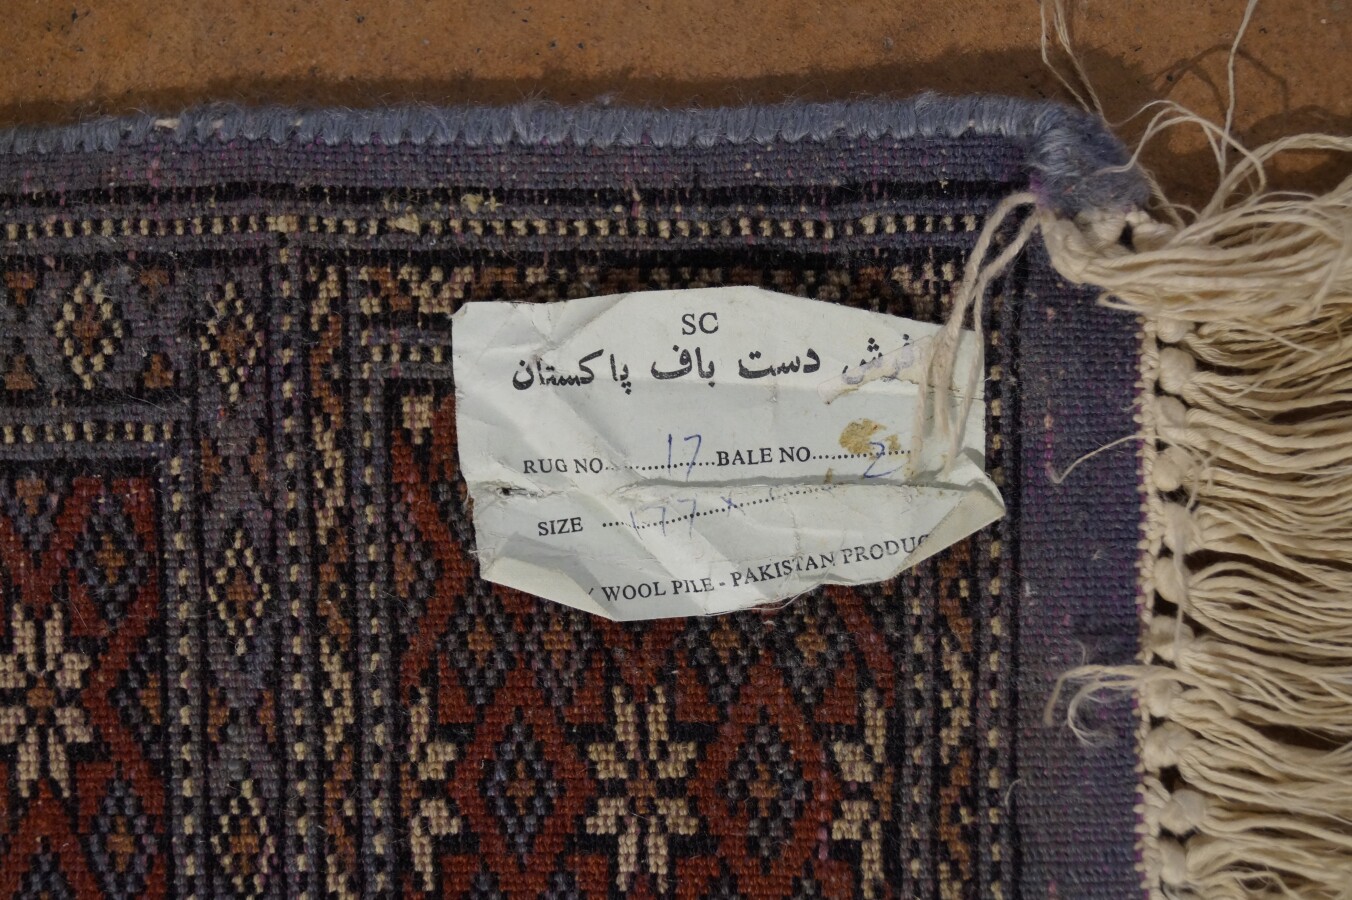 SC
فرش دست باف پاکستان
RUG NO..............17......BALE NO............2......
SIZE ....177 x
WOOL PILE - PAKISTAN PRODUC